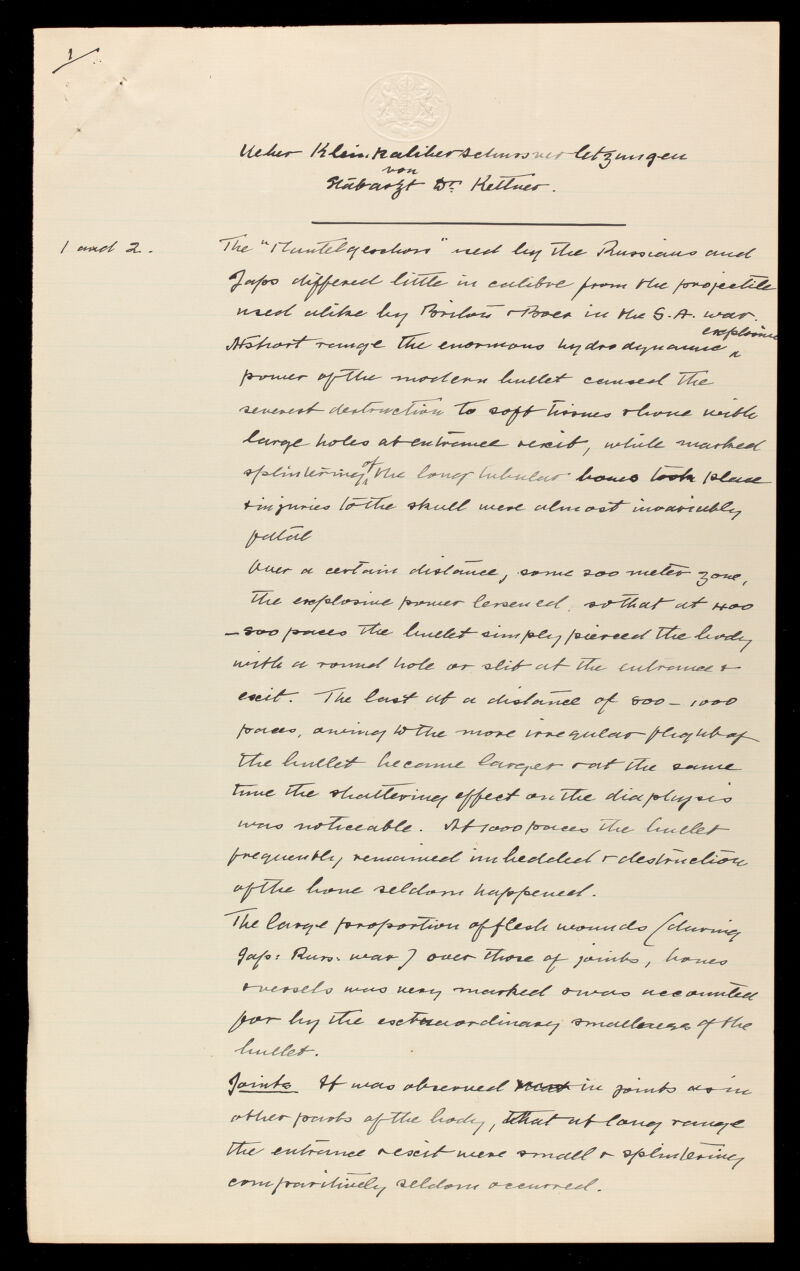 1/
Ueber Kleinkaliberschussverletzungen
von
Stabarzt Dr. Kettner.
1 and 2.
The "Mantelgeschoss" used by the Russians and
Japs differed little in calibre from the projectile
used alike by Briton & Boer in the S.A. war.
explosive
At short range the enormous hydrodynamic
power of the modern bullet caused the
severest destruction to soft tissues & bone with
large holes at entrance & exit, while marked
splintering of the long tubular bones took place
& injuries to the skull were almost invariably
fatal
Over a certain distance, some 200 meter zone,
the explosive power lessened, so that at 400
– 800 paces the bullet simply pierced the body
with a round hole or slit at the entrance &
exit. The last at a distance of 800 – 1000
paces, owing to the more irregular flight of
the bullet became larger & at the same
time the shattering effect on the diaphysis
was noticeable. At 1000 paces the bullet
frequently remained imbedded & destruction
of the bone seldom happened.
The large proportion of flesh wounds (during
Jap: Russ. war) over those of joints, bones
& vessels was very marked & was accounted
for by the extraordinary smallness of the
bullet.
Joints It was observed in joints as in
other parts of the body, that at long range
the entrance & exit were small & splintering
comparitively seldom occurred.